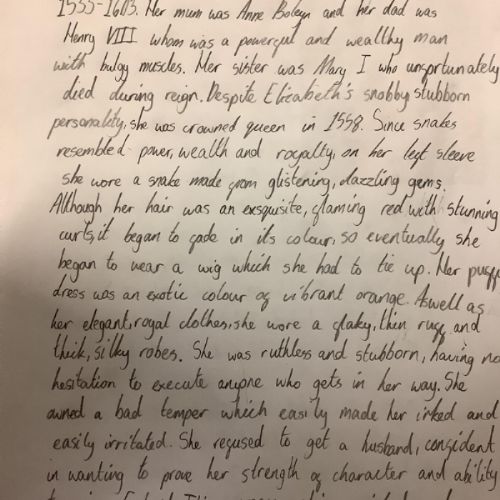 1533-1603. Her mum was Anne Boleyn and her dad was
Henry VIII whom was a powerful and wealthy man
with bulgy muscles. Her sister was Mary I who unsprtunately
died during reign. Despite Elizabeth's snobby, stubborn
personality, she was crowned queen in 1558. Since snakes
resembled power, wealth and royalty, on her left sleeve
she wore a snake made from glistening, dazzling gems.
Although her hair was an exsquisite, flaming red with stunning
curls, it began to fade in its colour, so eventually she
began to wear a wig which she had to tie up. Her puffy
dress was an exotic colour of vibrant orange. Aswell as
her elegant, royal clothes, she wore a flaky, thin ruff and
thick, silky robes. She was ruthless and stubborn, having no
hesitation to execute anyone who gets in her way. She
owned a bad temper which easily made her irked and
easily irritated. She refused to get a husband, confident
in wanting to prove her strength of character and ability